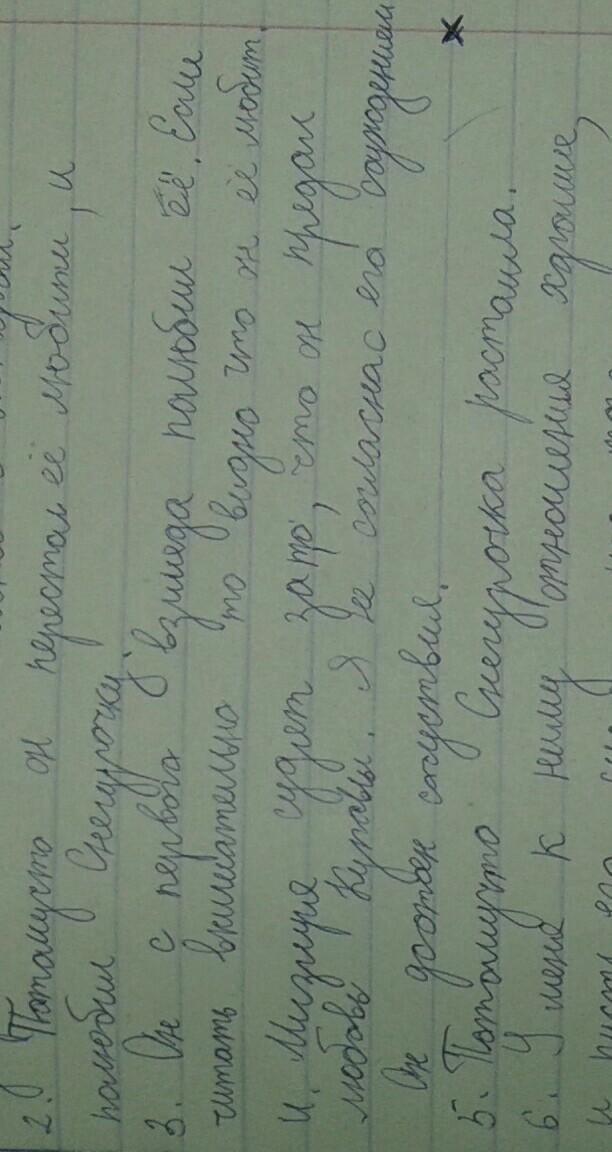 2. Патамушто он перестал её любити, и
полюбил Снегурочку
3. Он с первого взгляда полюбил её. Если
читать внимательно то видно что он её любит.
4. Мизгиря судят за то, что он предал
любовь Купавы. Я не согласна с его осуждением
Он достоен сочуствия.
5. Потомушто Снегурочка ростаила.
6. У меня к ниму отношения харошие,
и пусть его